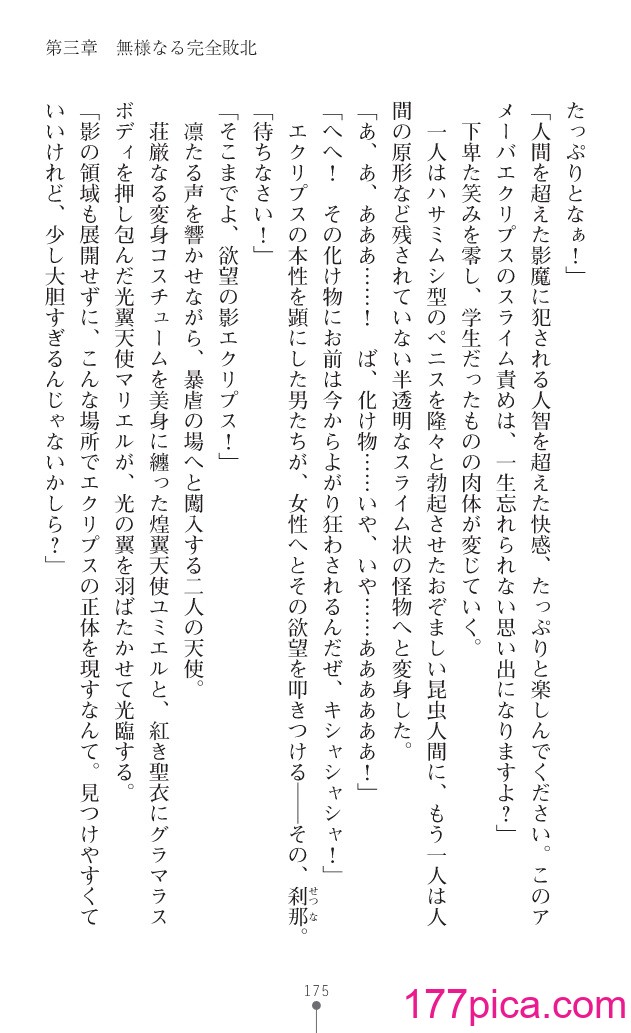 第三章　無様なる完全敗北
たっぷりとなぁ！」
「人間を超えた影魔に犯される人智を超えた快感、たっぷりと楽しんでください。このア
メーバエクリプスのスライム責めは、一生忘れられない思い出になりますよ？」
下卑た笑みを零し、学生だったものの肉体が変じていく。
一人はハサミムシ型のペニスを隆々と勃起させたおぞましい昆虫人間に、もう一人は人
間の原形など残されていない半透明なスライム状の怪物へと変身した。
「あ、あ、あああ……！　ば、化け物……いや、いや……ああああああ！」
「へへ！　その化け物にお前は今からよがり狂わされるんだぜ、キシャシャシャ！」
エクリプスの本性を顕にした男たちが、女性へとその欲望を叩きつける――その、刹那せつな。
「待ちなさい！」
「そこまでよ、欲望の影エクリプス！」
凛たる声を響かせながら、暴虐の場へと闖入する二人の天使。
荘厳なる変身コスチュームを美身に纏った煌翼天使ユミエルと、紅き聖衣にグラマラス
ボディを押し包んだ光翼天使マリエルが、光の翼を羽ばたかせて光臨する。
「影の領域も展開せずに、こんな場所でエクリプスの正体を現すなんて。見つけやすくて
いいけれど、少し大胆すぎるんじゃないかしら？」
175
177pica.com